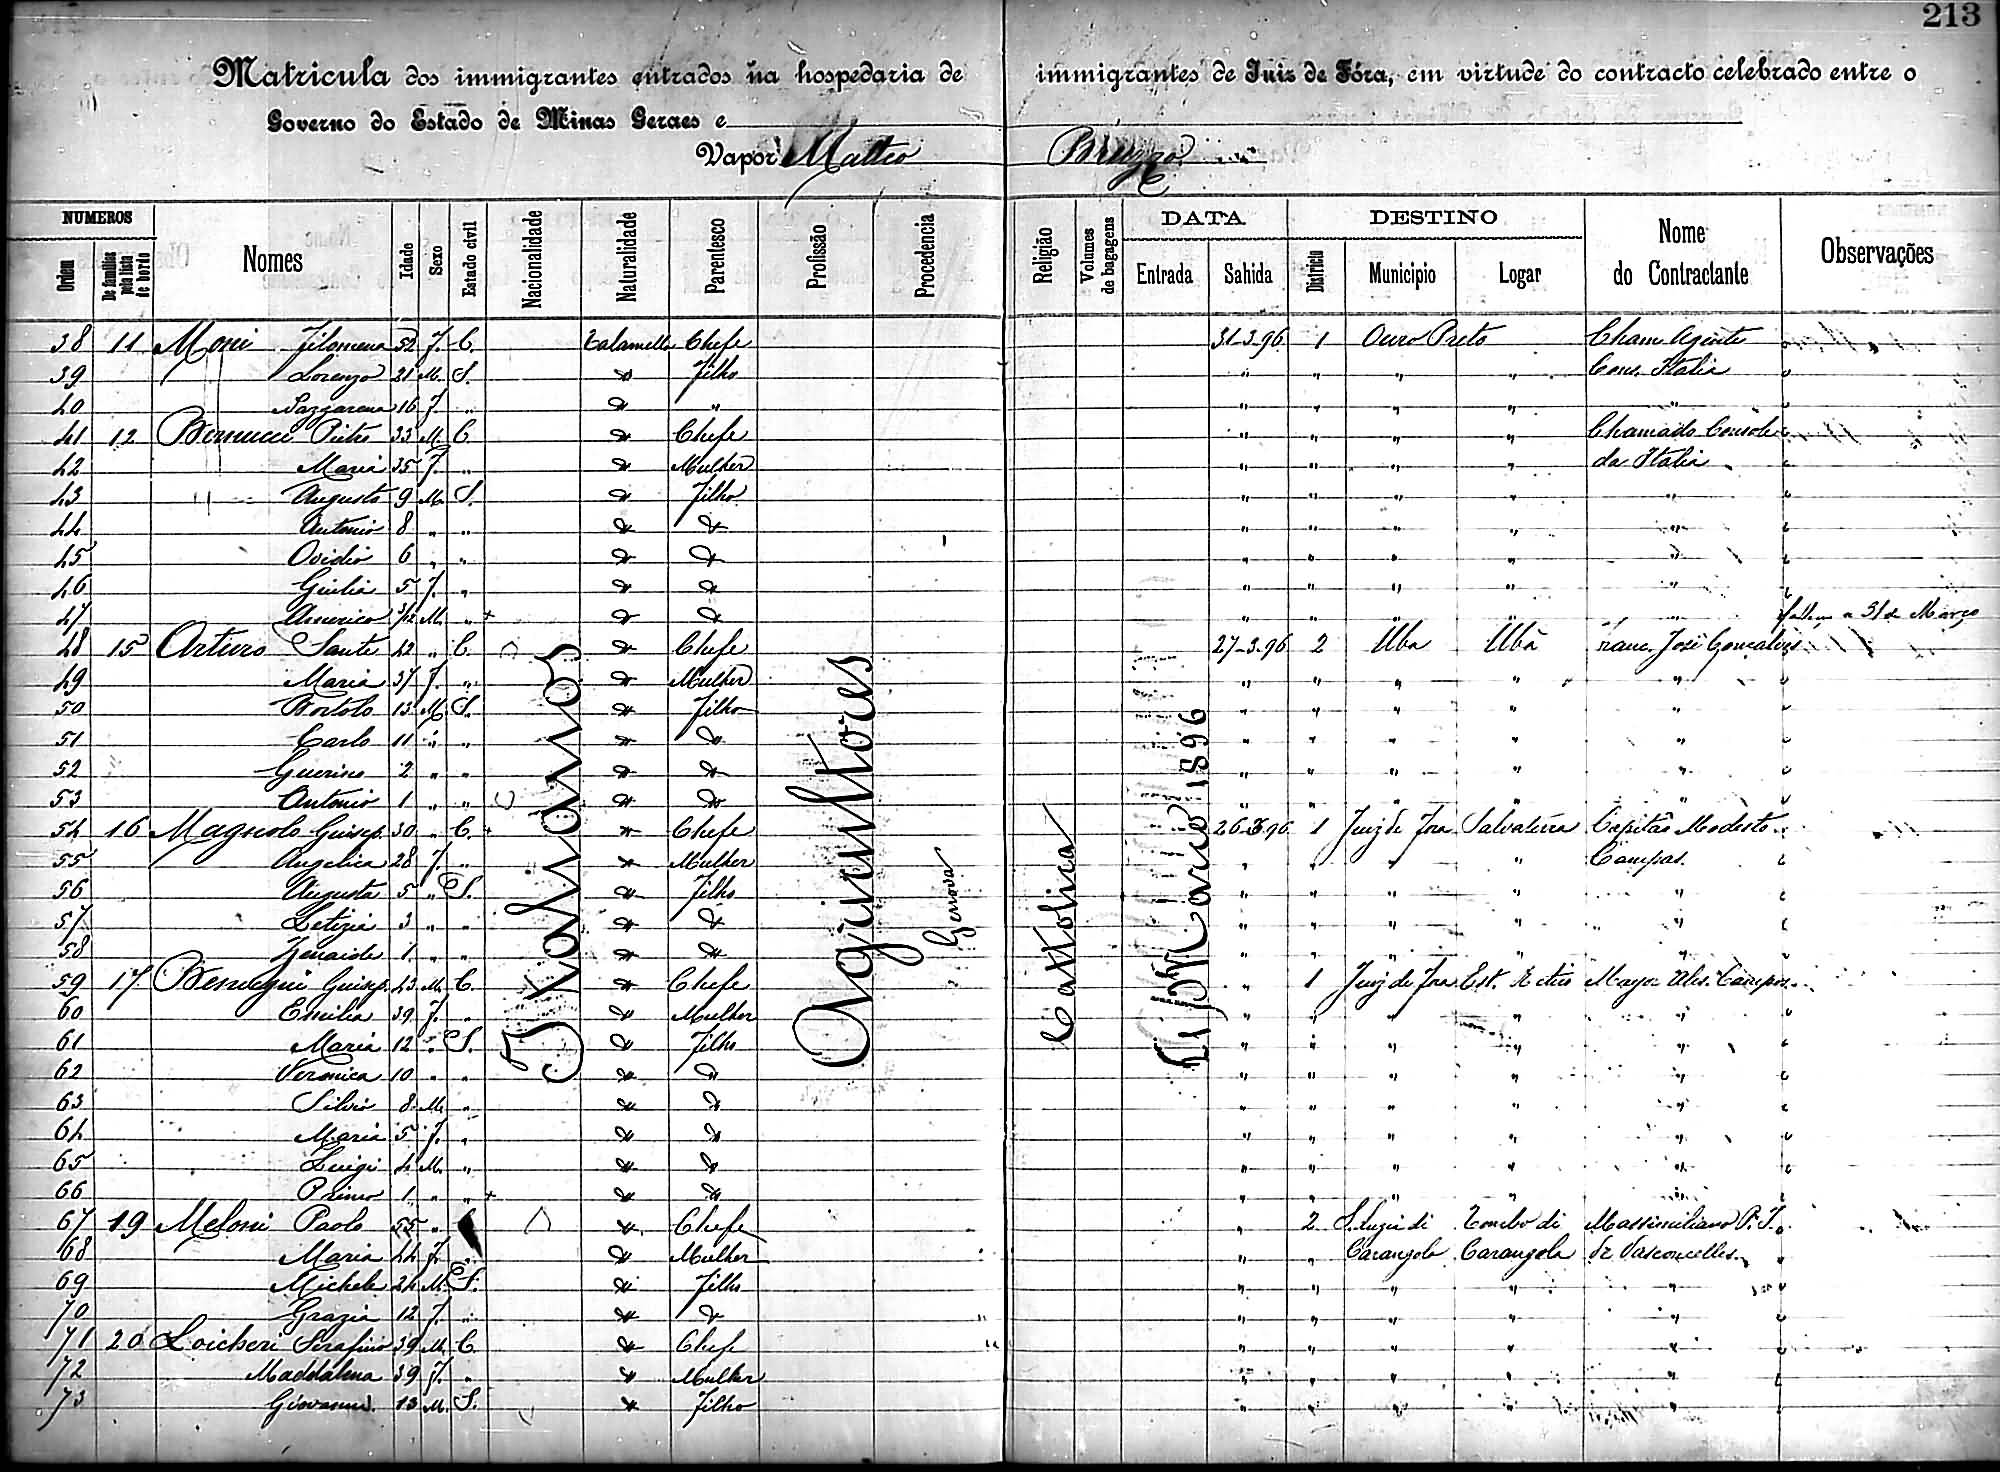 213
Matricula dos immigrantes entrados na hospedaria de immigrantes de Juiz de Fóra, em virtude do contracto celebrado entre o
Governo do Estado de Minas Geraes e
Vapor Matteo Bruzzo
NUMEROS Nomes Idade Sexo Estado civil Nacionalidade Naturalidade Parentesco Profissão Procedencia Religião Volumes de bagagens DATA DESTINO Nome do Contractante Observações
Ordem De familias pela lista de bordo Entrada Sahida Districto Municipio Logar
Italianos Agricultores Genova Cattolica Março 1896
38 11 Moni Filomena 52 F. C. Talamello Chefe 31-3-96 1 Ouro Preto Cham Agente
39 Lorenzo 21 M. S. " Filho " " " " Cons. Italia
40 16 F. " " " " " " " "
41 12 Pietro 33 M. C. " Chefe " " " " Chamado Console
42 Maria 35 F. " " Mulher " " " " da Italia
43 Augusto 9 M. S. " Filho " " " " "
44 Antonio 8 " " " " " " " " "
45 Ovidio 6 " " " " " " " " "
46 Giulia 5 F. " " " " " " " "
47 Americo M. " " " " " " " " a 31 de Março
48 15 Arturo Sante 42 " C. " Chefe 27-3-96 2 Uba Ubà José Gonçalves
49 Maria 37 F. " " Mulher " " " " "
50 Bortolo 13 M. S. " Filho " " " " "
51 Carlo 11 " " " " " " " " "
52 Guerino 2 " " " " " " " " "
53 Antonio 1 " " " " " " " " "
54 16 Magnolo Giusep. 30 " C. " Chefe 26-3-96 1 Juiz de Fora Salvaterra Capitão Modesto
55 Angelica 28 F. " " Mulher " " " " Campos.
56 Augusta 5 " S. " Filho " " " " "
57 Letizia 3 " " " " " " " " "
58 Zenaide 1 " " " " " " " " "
59 17 Giusep. 43 M. C. " Chefe " 1 Juiz de Fora Est. Retiro Campos
60 Emilia 39 F. " " Mulher " " " " "
61 Maria 12 " S. " Filho " " " " "
62 Veronica 10 " " " " " " " " "
63 Silvio 8 M. " " " " " " " "
64 Maria 5 F. " " " " " " " "
65 Luigi 4 M. " " " " " " " "
66 Primo 1 " " " " " " " " "
67 19 Meloni Paolo 55 " C. " Chefe " 2 S. Luzia di Tombo di Massimiliano P. T.
68 Maria 44 F. " " Mulher " " Carangola Carangola de Vasconcelles
69 Michele 24 M. S. " Filho " " " " "
70 Grazia 12 F. " " " " " " " "
71 20 Loicheri Serafino 39 M. C. " Chefe " " " " "
72 Maddalena 39 F. " " Mulher " " " " "
73 Giovanni 13 M. S. " Filho " " " " "